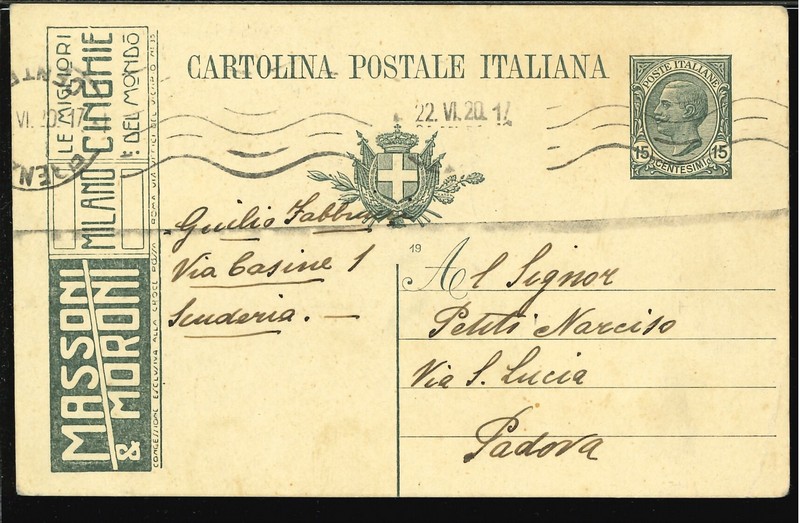 CARTOLINA POSTALE ITALIANA
POSTE ITALIANE
15 CENTESIMI 15
22.VI.20.17
VI.20.17
LE MIGLIORI
CINGHIE
DEL MONDO
MILANO
MASSONI
& MORONI
CONCESSIONE ESCLUSIVA ALLA CROCE ROSSA ROMA VIA
Via Casine 1
Scuderia. —
19
Al Signor
Petiti Narciso
Via S. Lucia
Padova